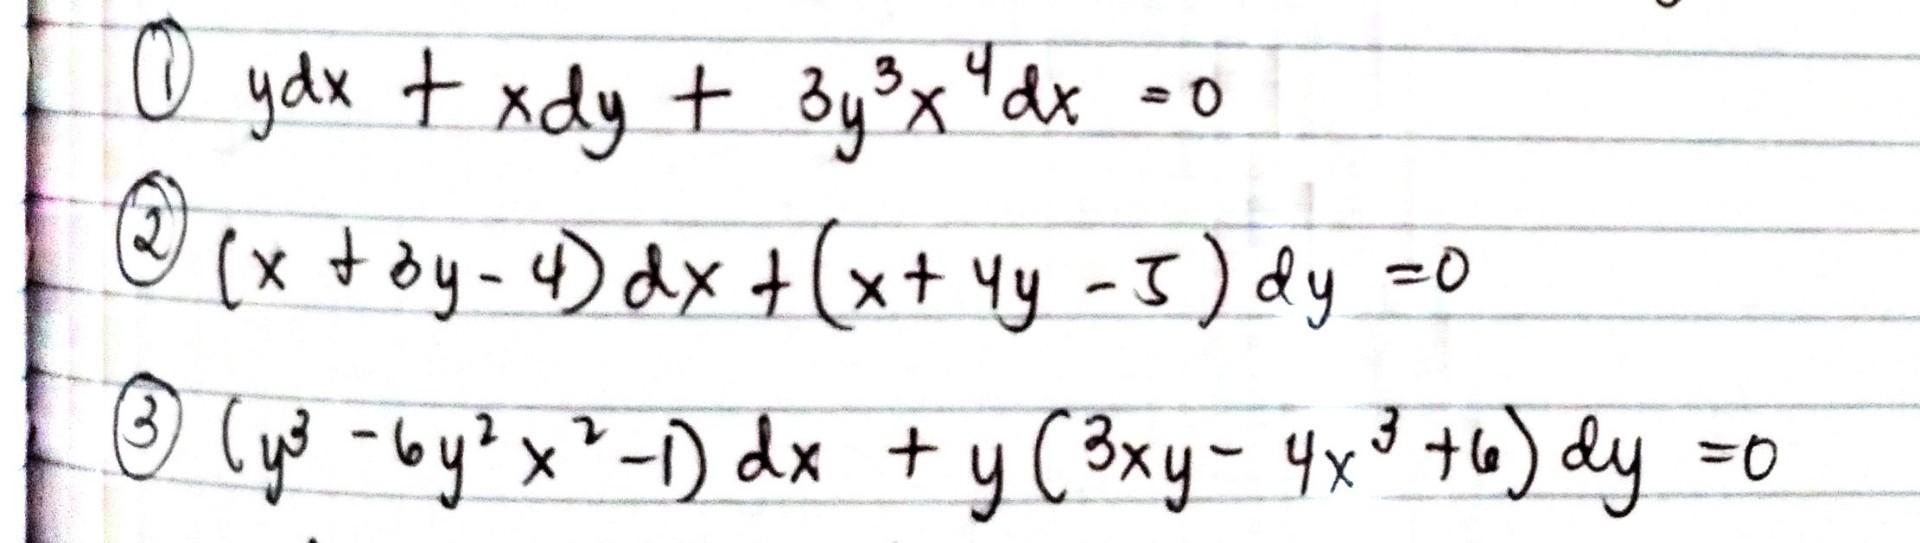 ① ydx + xdy + 3y³x⁴dx = 0
② (x + 3y - 4) dx + (x + 4y - 5) dy = 0
③ (y³ - 6y²x² - 1) dx + y (3xy - 4x³ + 6) dy = 0